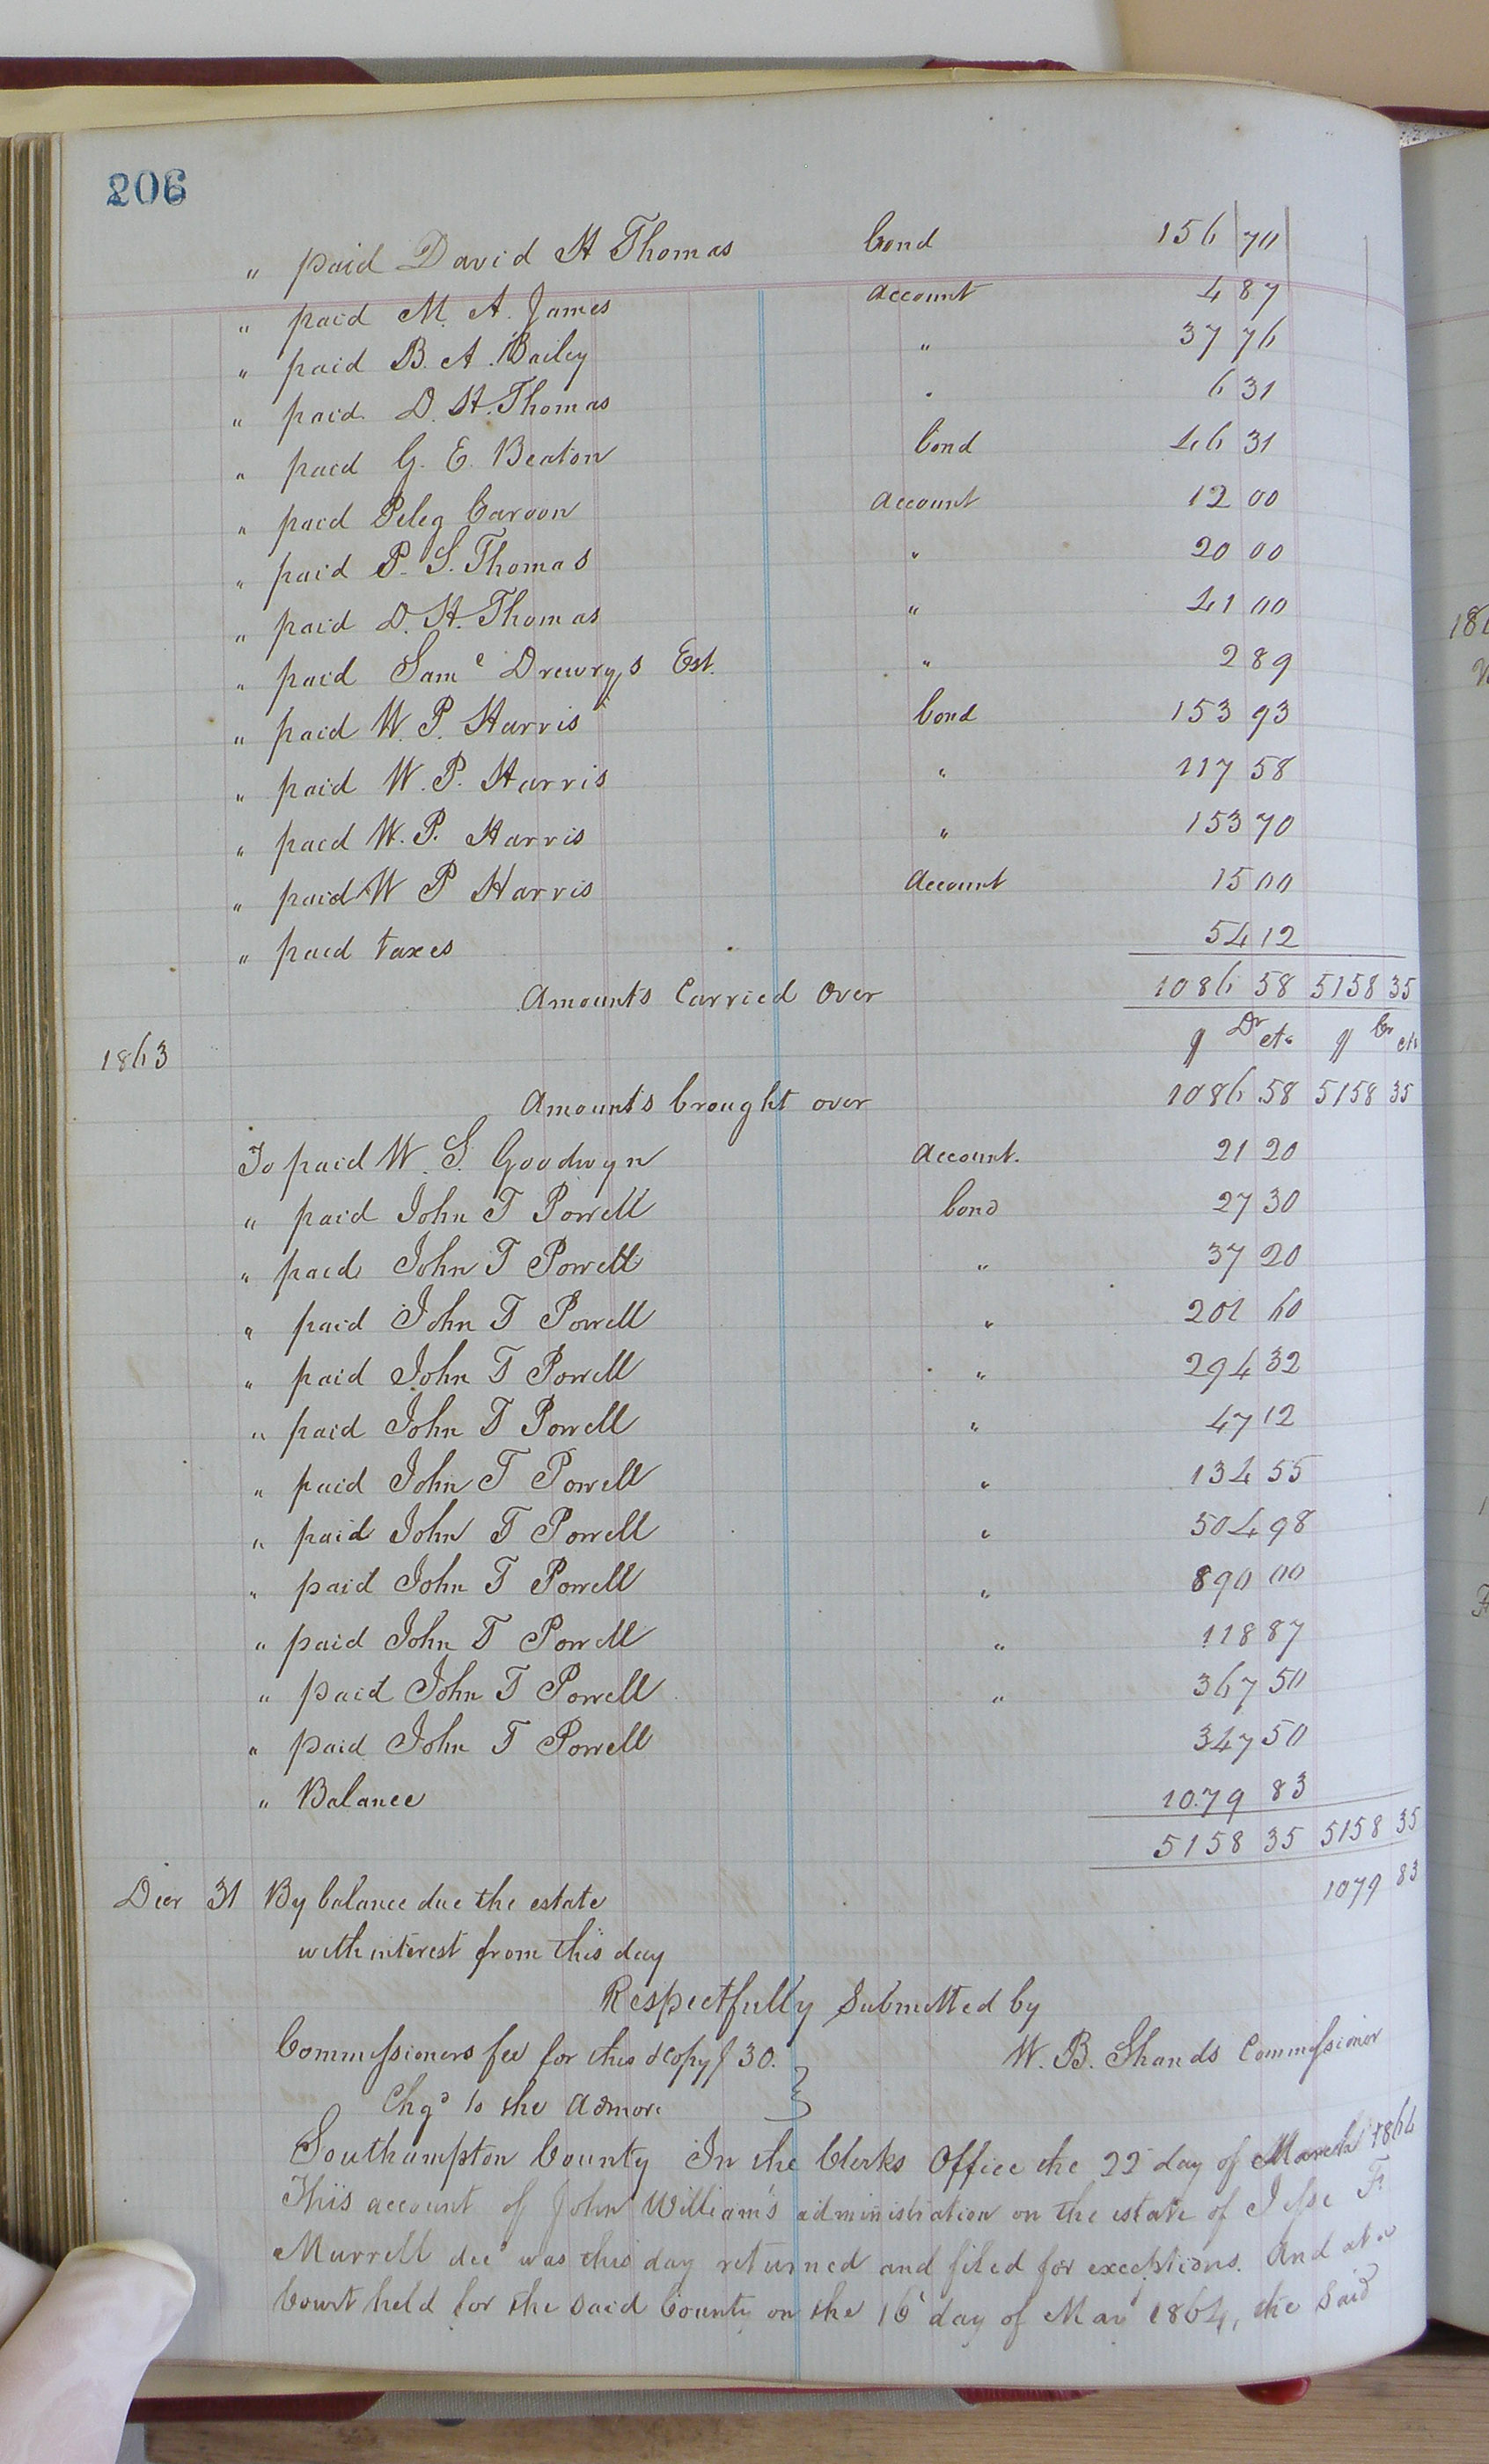 206
" paid David H Thomas bond 156 70
" paid M. A. James account 4 87
" paid B. A. Bailey " 37 76
" paid D. H. Thomas " 6 31
" paid G. E. Beaton bond 46 31
" paid Peleg Caroon account 12 00
" paid P. S. Thomas " 20 00
" paid D. H. Thomas " 41 00
" paid Saml Drewrys Est. " 2 89
" paid W. P. Harris bond 153 93
" paid W. P. Harris " 117 58
" paid W. P. Harris " 153 70
" paid W P Harris account 15 00
" paid taxes 54 12
Amounts Carried Over 1086 58 5158 35
1863 $ Dr cts $ Cr cts
Amounts brought over 1086 58 5158 35
To paid W. S. Goodwyn account. 21 20
" paid John T Powell bond 27 30
" paid John T Powell " 37 20
" paid John T Powell " 201 60
" paid John T Powell " 294 32
" paid John T Powell " 47 12
" paid John T Powell " 134 55
" paid John T Powell " 504 98
" paid John T Powell " 890 00
" paid John T Powell " 118 87
" paid John T Powell " 367 50
" paid John T Powell 347 50
" Balance 1079 83
5158 35 5158 35
Decr 31 By balance due the estate 1079 83
with interest from this day
Respectfully Submitted by
Commissioners fee for this & copy $30. W. B. Shands Commissioner
Chgd to the admor.
Southampton County In the Clerks Office the 22 day of March 1864
This account of John William's administration on the estate of Jesse F.
Murrell decd was this day returned and filed for exceptions. And at a
Court held for the said County on the 16 day of May 1864, the said